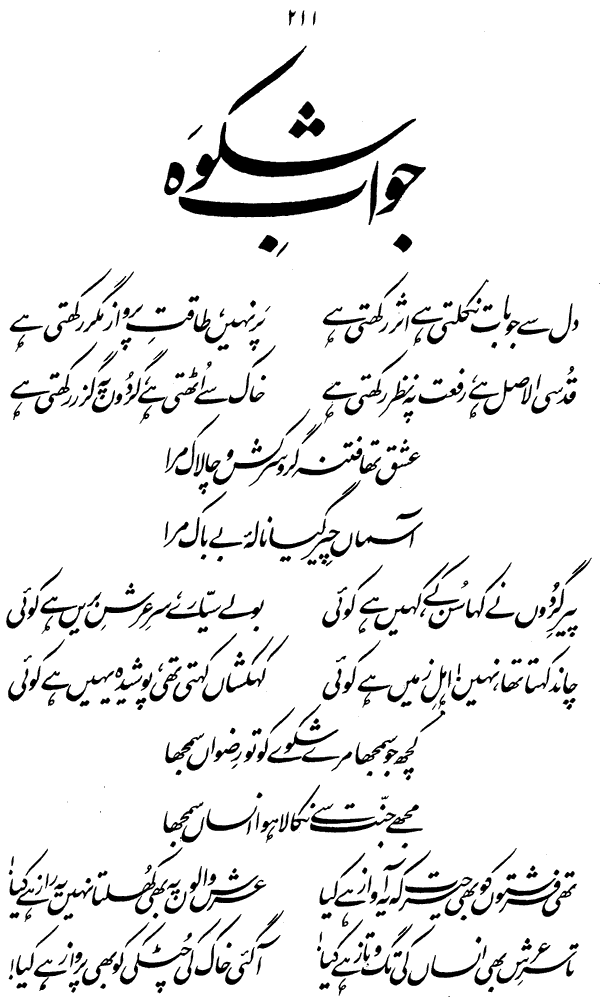 ۲۱۱
جوابِ شکوَہ
دل سے جو بات نکلتی ہے اثر رکھتی ہے پَر نہیں، طاقتِ پرواز مگر رکھتی ہے
قُدسی الاصل ہے، رفعت پہ نظر رکھتی ہے خاک سے اُٹھتی ہے، گردُوں پہ گزر رکھتی ہے
عشق تھا فتنہ گر و سرکش و چالاک مرا
آسماں چِیر گیا نالۂ بے باک مرا
پیرِ گردُوں نے کہا سُن کے، کہیں ہے کوئی بولے سیّارے، سرِ عرشِ بریں ہے کوئی
چاند کہتا تھا، نہیں! اہلِ زمیں ہے کوئی کہکشاں کہتی تھی، پوشیدہ یہیں ہے کوئی
کچھ جو سمجھا مرے شکوے کو تو رضواں سمجھا
مجھے جنّت سے نکالا ہوا انساں سمجھا
تھی فرشتوں کو بھی حیرت کہ یہ آواز ہے کیا عرش والوں پہ بھی کھُلتا نہیں یہ راز ہے کیا!
تا سرِ عرش بھی انساں کی تگ و تاز ہے کیا! آگئی خاک کی چُٹکی کو بھی پرواز ہے کیا!